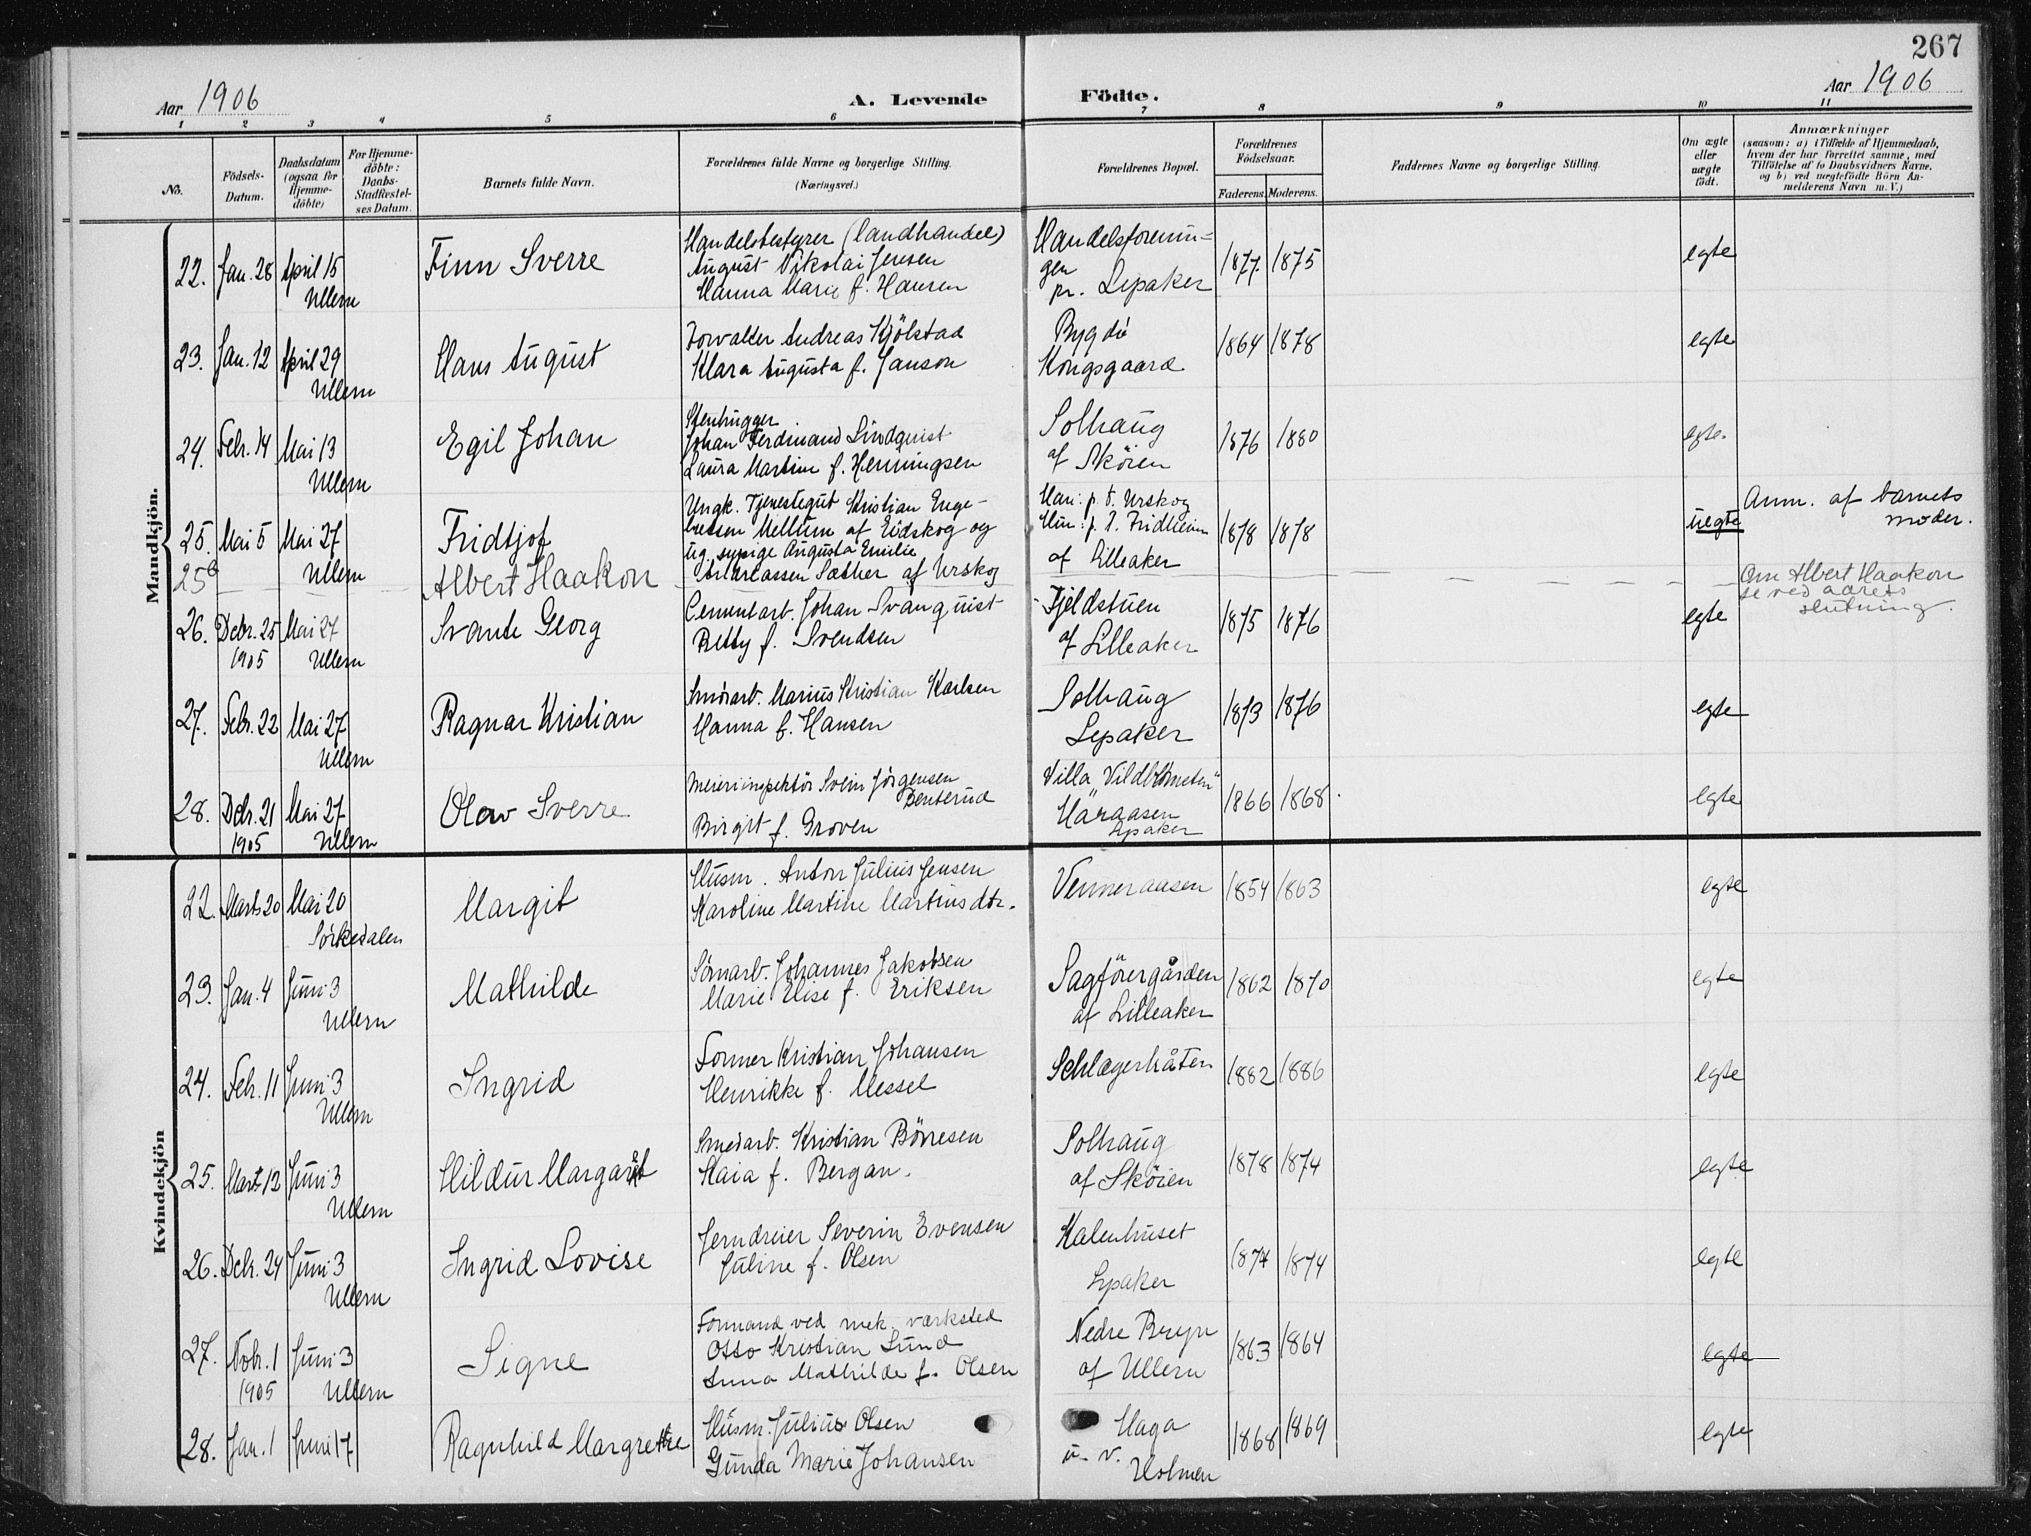 267
Aar 1906
A. Levende Födte.
Aar 1906
1 2 3 4 5 6 7 8 9 10 11
No.
Födsels-Datum.
Daabsdatum (ogsaa for Hjemme-döbte)
For Hjemme-döbte: Daabs-Stadfæstel-ses Datum.
Barnets fulde Navn.
Forældrenes fulde Navne og borgerlige Stilling. (Næringsvei.)
Forældrenes Bopæl.
Forældrenes Födselsaar.
Faderens. Moderens.
Faddernes Navne og borgerlige Stilling.
Om ægte eller uægte födt.
Anmærkninger
(saasom: a) i Tilfælde af Hjemmedaab,
hvem der har forrettet samme, med
Tilföielse af to Daabsvidners Navne.
og b) ved uægtefödte Börn An-
melderens Navn m. V.)
Mandkjön.
22. Jan. 28 April 15 Ullern
Finn Sverre
Handelsbestyrer (landhandel)
August Nikolai Jensen
Hanna Marie f. Hansen
Handelsforenin-
gen
pr. Lysaker
1877. 1875
egte
23. Jan. 12 April 29 Ullern
Hans August
Forvalter Andreas Kjölstad
Klara Augusta f. Janson
Bygdö
Kongsgaard
1864 1878
egte
24. Febr. 14 Mai 13 Ullern
Egil Johan
Stenhugger
Johan Ferdinand Lindquist
Laura Martine f. Henningsen
Solhaug
af Sköien
1876 1880
egte.
25. Mai 5 Mai 27 Ullern
Fridtjof
Ungk. Tjenestegut Kristian Enge-
bretsen Mellum af Eidskog og
ug. sypige Augusta Emilie
Andreassen Sæther af Urskog
Han: p. t. Urskog
Hun: p. t. Fridheim
af Lilleaker
1878 1878
uegte
Anm. af barnets
moder.
25b
Albert Haakon
Om Albert Haakon
se ved aarets
slutning.
26. Debr. 25 1905 Mai 27 Ullern
Svante Georg
Cementarb. Johan Svanquist
Betty f. Svendsen
Fjeldstuen
af Lilleaker
1875 1876
egte
27. Febr. 22 Mai 27 Ullern
Ragnar Kristian
Smörarb. Marius Kristian Karlsen
Hanna f. Hansen
Solhaug
Lysaker
1873 1876
egte
28. Debr. 21 1905 Mai 27 Ullern
Olav Sverre
Meieriinspektör Svein Jörgensen
Benterud
Birgit f. Groven
Villa "Vildblomsten"
Haraasen
Lysaker
1866 1868.
egte
Kvindekjön
22. Marts 20 Mai 20 Sörkedalen
Margit
Husm. Anton Julius Jensen
Karoline Martine Martinsdtr.
Venneraasen
1854 1863
egte
23. Jan. 4 Juni 3 Ullern
Mathilde
Johannes Jakobsen
Marie Elise f. Eriksen
Sagförergården
af Lilleaker
1862 1870
egte
24. Febr. 11 Juni 3 Ullern
Ingrid
Former Kristian Johansen
Henrikke f. Messel
Schlægerhåten
1882 1886
egte
25. Marts 12 Juni 3 Ullern
Hildur Margarit
Smedarb. Kristian Börresen
Kaia f. Bergan.
Solhaug
af Sköien
1878 1874
egte
26. Debr. 24 Juni 3 Ullern
Ingrid Lovise
Jerndreier Severin Evensen
Juline f. Olsen
Kalenhuset
Lysaker
1874 1874
egte
27. Novbr. 1 1905 Juni 3 Ullern
Signe
Formand ved mek. værksted
Otto Kristian Lund
Anna Mathilde f. Olsen
Nedre Bryn
af Ullern
1863 1864
egte
28. Jan. 1 Juni 17
Ragnhild Margrethe
Husm. Julius Olsen
Gunda Marie Johansen
Haga
u. v.
Holmen
1868 1869
egte